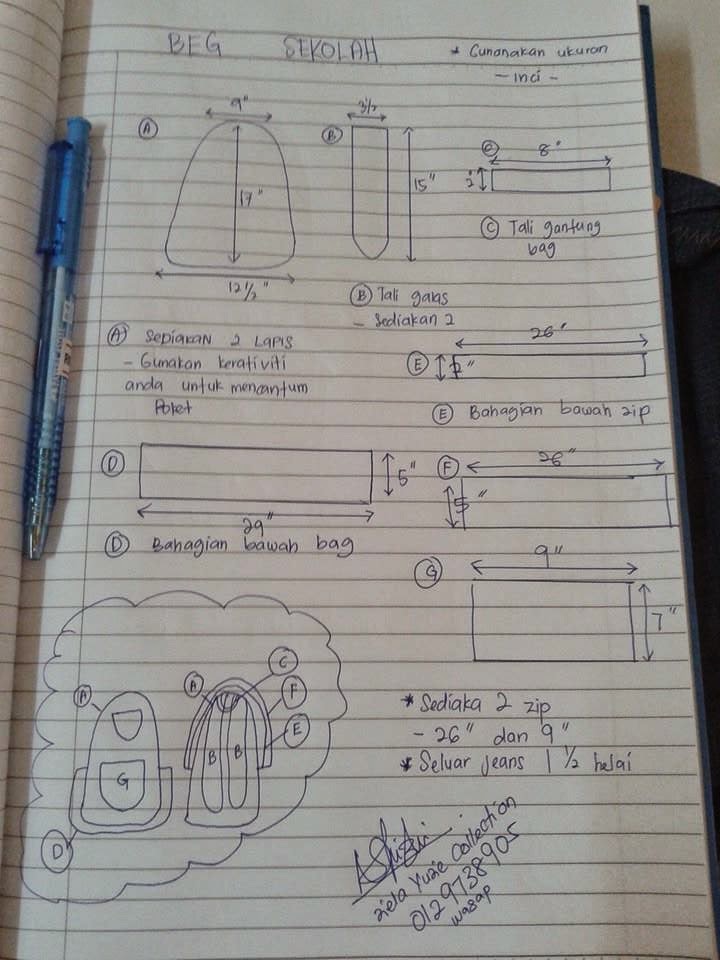 BEG SEKOLAH
* Gunanakan ukuran
- Inci -
A
9"
17"
12 1/2"
B
3 1/2
15"
C
8"
2"
C Tali gantung
bag
B Tali galas
- Sediakan 2
A SEDIAKAN 2 LAPIS
- Gunakan kerativiti
anda untuk mencantum
Poket
E
26"
E Bahagian bawah zip
D
5"
29"
D Bahagian bawah bag
F
26"
G
9"
7"
A
G
D
A
C
F
E
B
B
* Sediaka 2 zip
- 26" dan 9"
* Seluar jeans 1 1/2 helai
ziela Yuzie Collection
0129738905
wasap